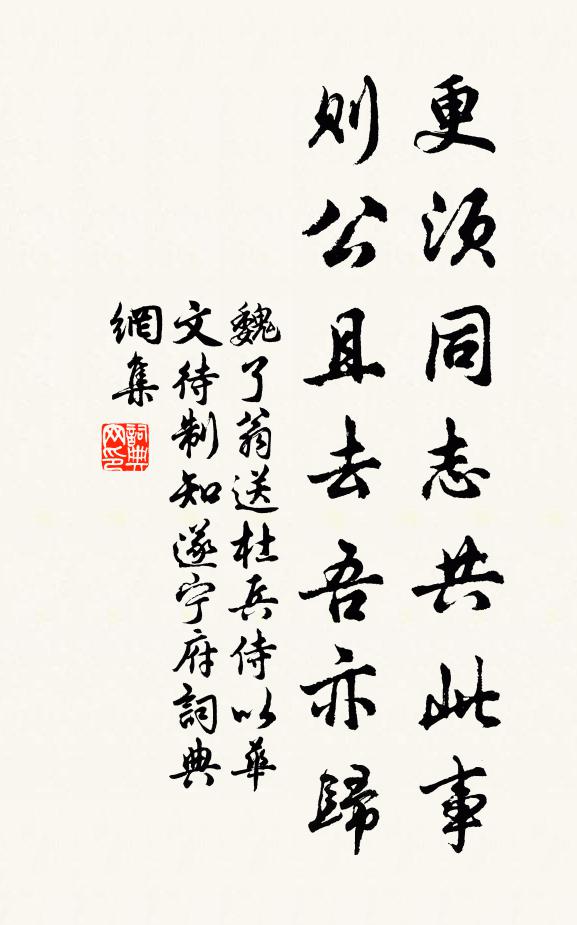 更須同志共此事
則公且去吾亦歸
魏了翁送杜兵侍以華
文待制知遂宁府詞典
網集
詞典
网印